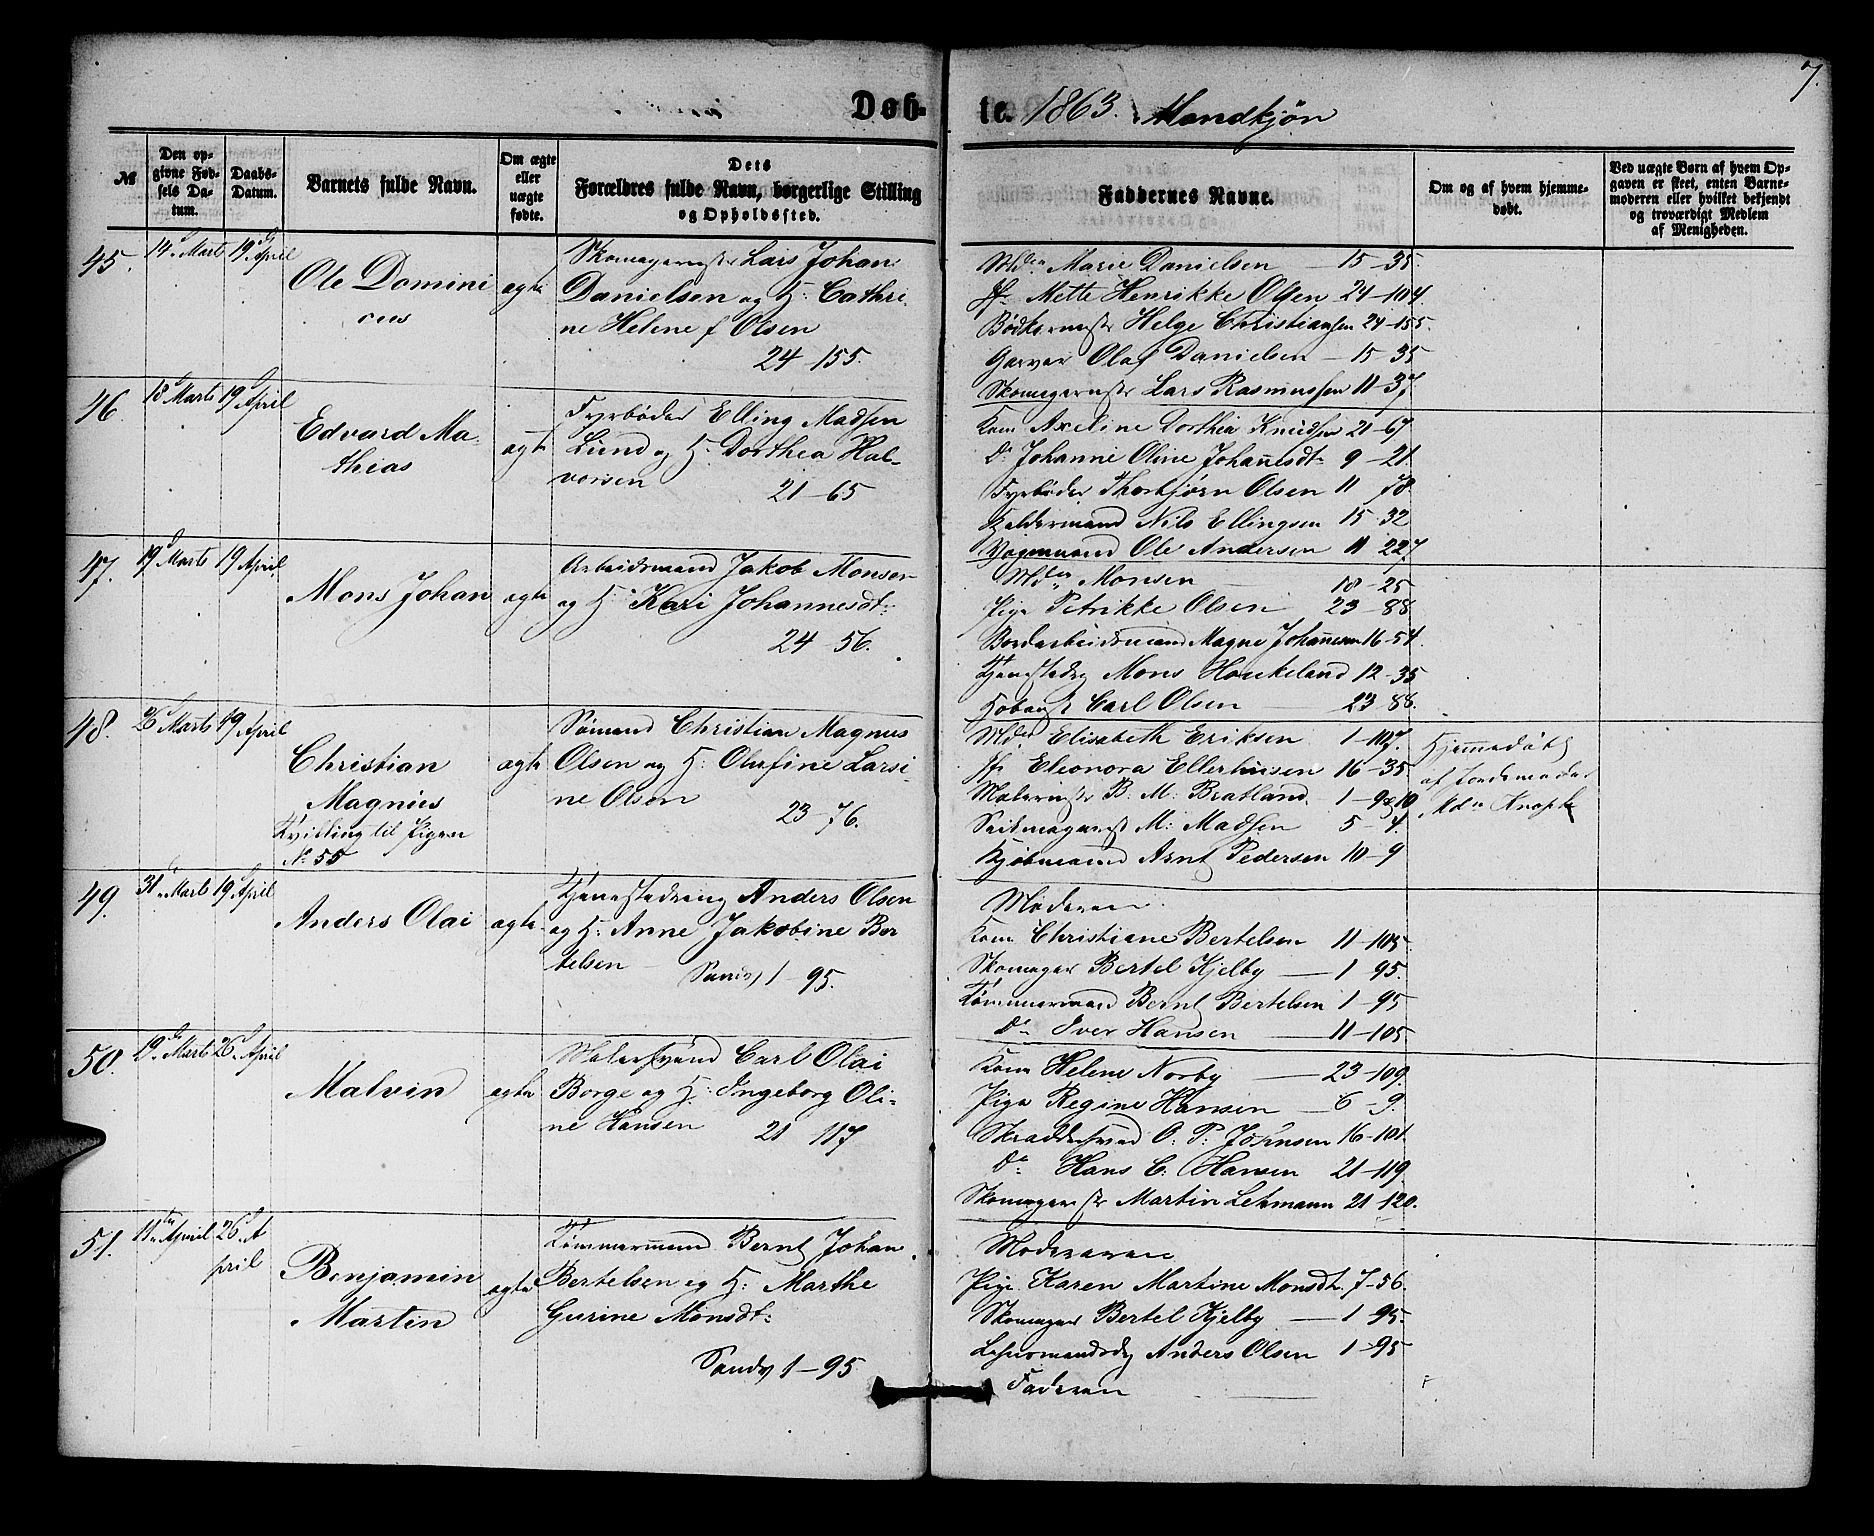 7.
Døb-
te. 1863. Mandkjøn
№
Den op-
givne Fød-
sels Da-
tum.
Daabs-
Datum.
Barnets fulde Navn.
Om ægte
eller
uægte
fødte.
Dets
Forældres fulde Navn, borgerlige Stilling
og Opholdssted.
Faddernes Navne.
Om og af hvem hjemme-
døbt.
Ved uægte Børn af hvem Op-
gaven er skeet, enten Barne-
moderen eller hvilket bekjendt
og troværdigt Medlem
af Menigheden.
45. 14 Marts 19 April
Ole Domini
cus
ægte
Skomagermstr Lars Johan
Danielsen og H: Cathri
ne Helene f Olsen
24-155.
Md Marie Danielsen 15-35
Jf Mette Henrikke Olsen 24-104.
Bødkermstr Helge Christiansen 24-155.
Garver Olaf Danielsen 15-35
Skomagermstr Lars Rasmussen 11-37
46. 18 Marts 19 April
Edvard Ma
thias
ægte
Fyrbøder Elling Madsen
Lund og H: Dorthea Hal-
vorsen
21-65
Kone Axeline Dorthea Knudsen 21-67
Do Johanne Oline Johannesdt 9-21.
Fyrbøder Thorbjørn Olsen 11 78.
Nils Ellingsen 15-32
Vognmand Ole Andersen 11 227.
47. 19 Marts 19 April
Mons Johan
ægte
Arbeidsmand Jakob Monsen
og H: Kari Johannesdt:
24 56.
Md Monsen 18-25
Pige Petrikke Olsen 23-88
Bordarbeidsmand Magne Johannesen 16-54
Tjenestedrg Mons Houkeland 12-35
Carl Olsen 23-88.
48. 26 Marts 19 April
Christian
Magnus
Tvilling til Pigen
No 55
ægte
Sømand Christian Magnus
Olsen og H: Olufine Larsi-
ne Olsen
23-76.
Md Elisabeth Eriksen 1-107.
Jf Eleonora Ellerhusen 16-35
Malermstr B. M. Bratland 1-9&10
Seilmagermstr M: Madsen 5-4.
Kjøbmand Arnt Pedersen 10-9
Hjemmedøbt
af Jordemoder
Mdm Knoph
49. 31 Marts 19 April
Anders Olai
ægte
Tjenestedreng Anders Olsen
og H: Anne Jakobine Ber
telsen
Sandv 1-95.
Moderen
Kone Christiane Bertelsen 11-105
Skomager Bertel Kjelby 1 95.
Tømmermand Bernt Bertelsen 1-95
Do Iver Hansen 11-105
50. 19 Marts 26 April
Malvin
ægte
Malersvend Carl Olai
Borge og H: Ingeborg Oli-
ne Hansen
21 117
Kone Helene Norby 23-109.
Pige Regine Hansen 6-9.
Skræddersvend O. P. Johnsen 16-101.
Do Hans C. Hansen 21-119
Skomagermstr Martin Lehmann 21 120.
51. 11 April 26 A
pril
Benjamin
Martin
ægte
Tømmermand Bernt Johan
Bertelsen og H: Marthe
Gurine Monsdt:
Sandv 1-95
Moderen
Pige Karen Martine Monsdt. 7-56.
Skomager Bertel Kjelby 1 95.
Anders Olsen 1-95
Faderen